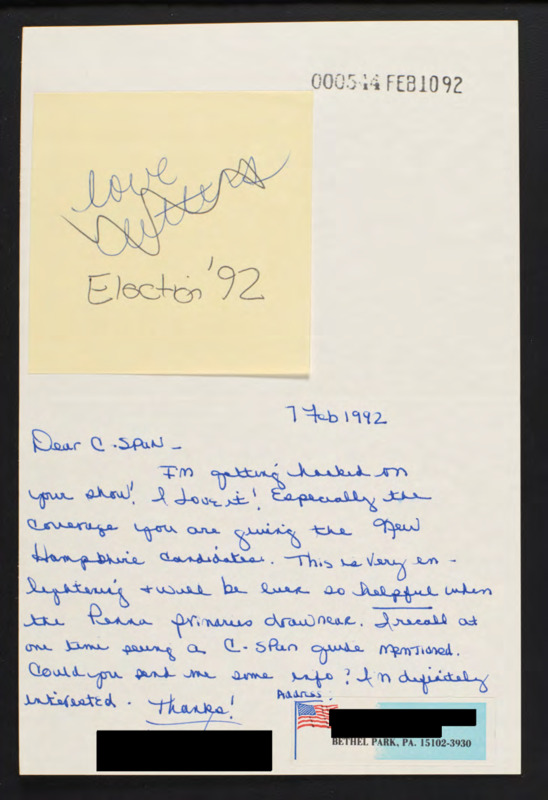 000544 FEB1092
love
letters
Election '92
7 Feb 1992
Dear C-SPAN -
I'm getting hooked on
your show! I Love it! Especially the
coverage you are giving the New
Hampshire candidates. This is very en-
lightening & will be even so helpful when
the Penna primaries draw near. I recall at
one time seeing a C-SPAN guide mentioned.
Could you send me some info? I'm definitely
interested. Thanks!
Address:
BETHEL PARK, PA. 15102-3930